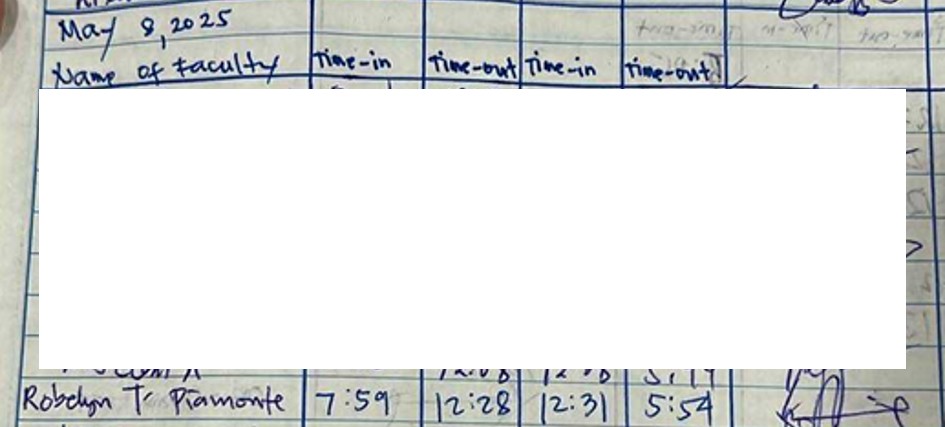 May 8, 2025
Name of Faculty Time-in Time-out Time-in Time-out
Robelyn T. Piamonte 7:59 12:28 12:31 5:54